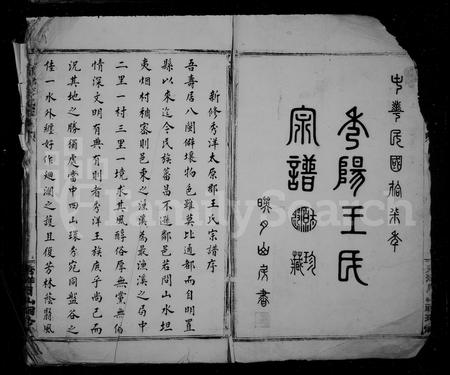 中華民國拾柒年
秀陽王氏
宗譜
珍藏
映月山房書
新修秀洋太原郡王氏宗譜序
吾壽居八閩僻壤物色雖莫比通都而自明置
縣以來迄今民族蕃昌不遜鄰邑若問山水坦
夷烟村稠密則邑東之漁溪為最漁溪之局中
二里一村三里一境求其風醇俗厚無黨無偏
情深文明有典有則者秀洋王族庶乎尚已而
況其地之勝獨處當中四山環秀宛同盤谷之
佳一水外纏好作迴瀾之護且復芳林蔭翳風
FamilySearch